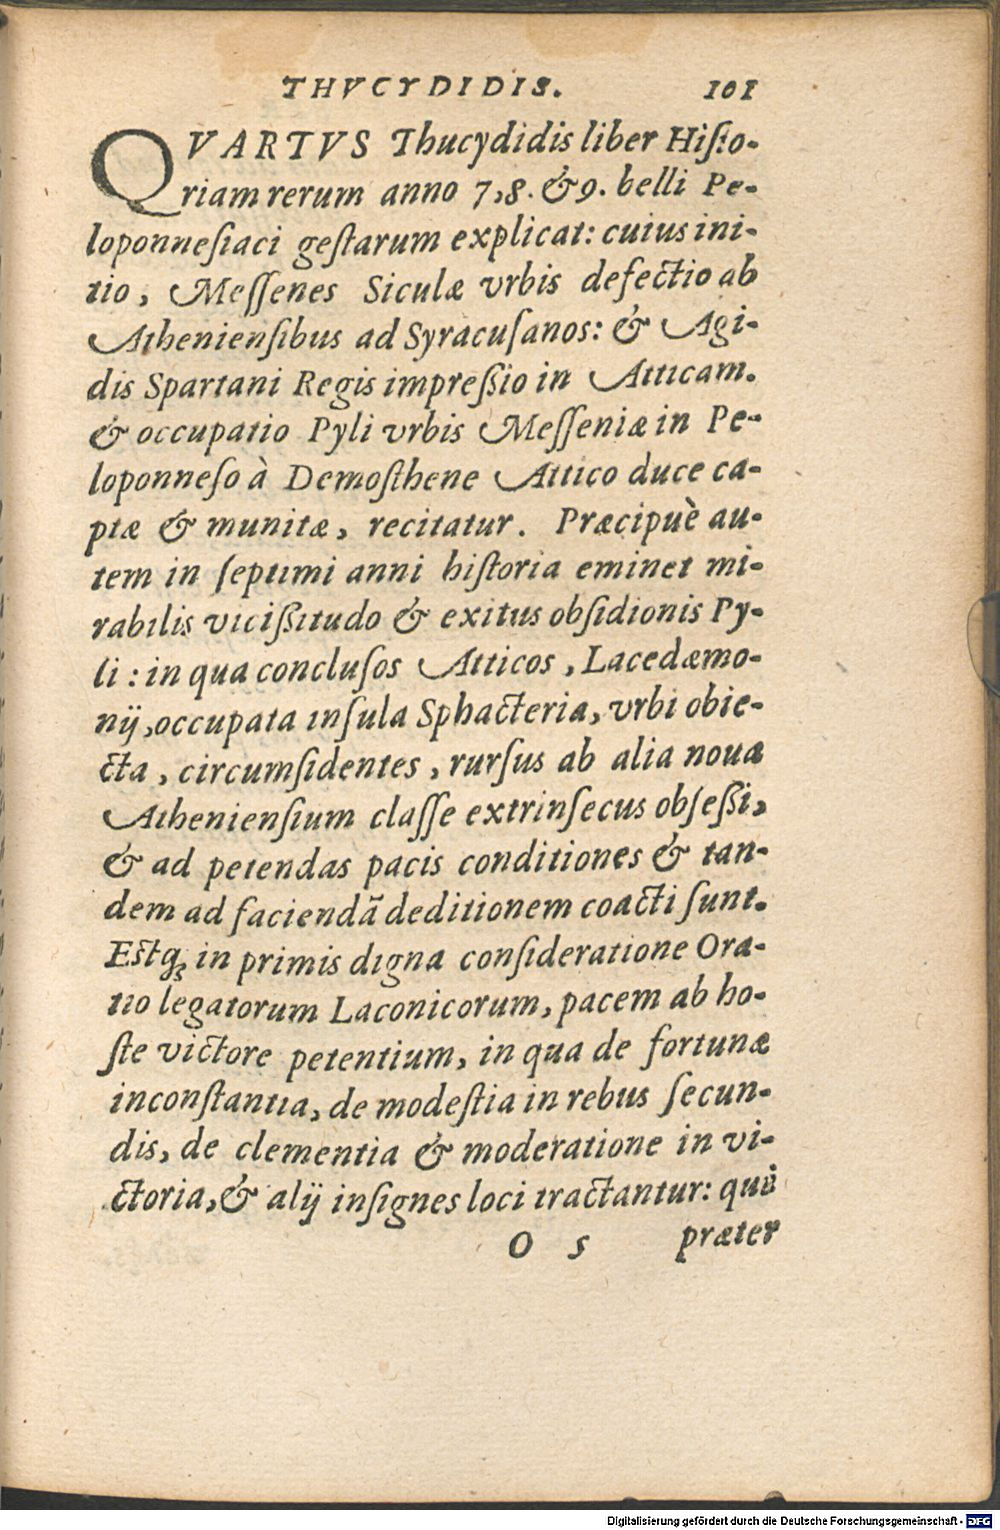 THVCYDIDIS. 101
QVARTVS Thucydidis liber Histo-
riam rerum anno 7,8. & 9. belli Pe-
loponnesiaci gestarum explicat: cuius ini-
tio, Messenes Siculæ vrbis defectio ab
Atheniensibus ad Syracusanos: & Agi-
dis Spartani Regis impreßio in Atticam.
& occupatio Pyli vrbis Messeniæ in Pe-
loponneso à Demosthene Attico duce ca-
ptæ & munitæ, recitatur. Præcipuè au-
tem in septimi anni historia eminet mi-
rabilis vicißitudo & exitus obsidionis Py-
li: in qua conclusos Atticos, Lacedæmo-
nij, occupata insula Sphacteria, vrbi obie-
cta, circumsidentes, rursus ab alia noua
Atheniensium classe extrinsecus obseßi,
& ad petendas pacis conditiones & tan-
dem ad faciendã deditionem coacti sunt.
Estq; in primis digna consideratione Ora-
tio legatorum Laconicorum, pacem ab ho-
ste victore petentium, in qua de fortunæ
inconstantia, de modestia in rebus secun-
dis, de clementia & moderatione in vi-
ctoria, & alij insignes loci tractantur: quü
O 5 præter
Digitalisierung gefördert durch die Deutsche Forschungsgemeinschaft - DFG